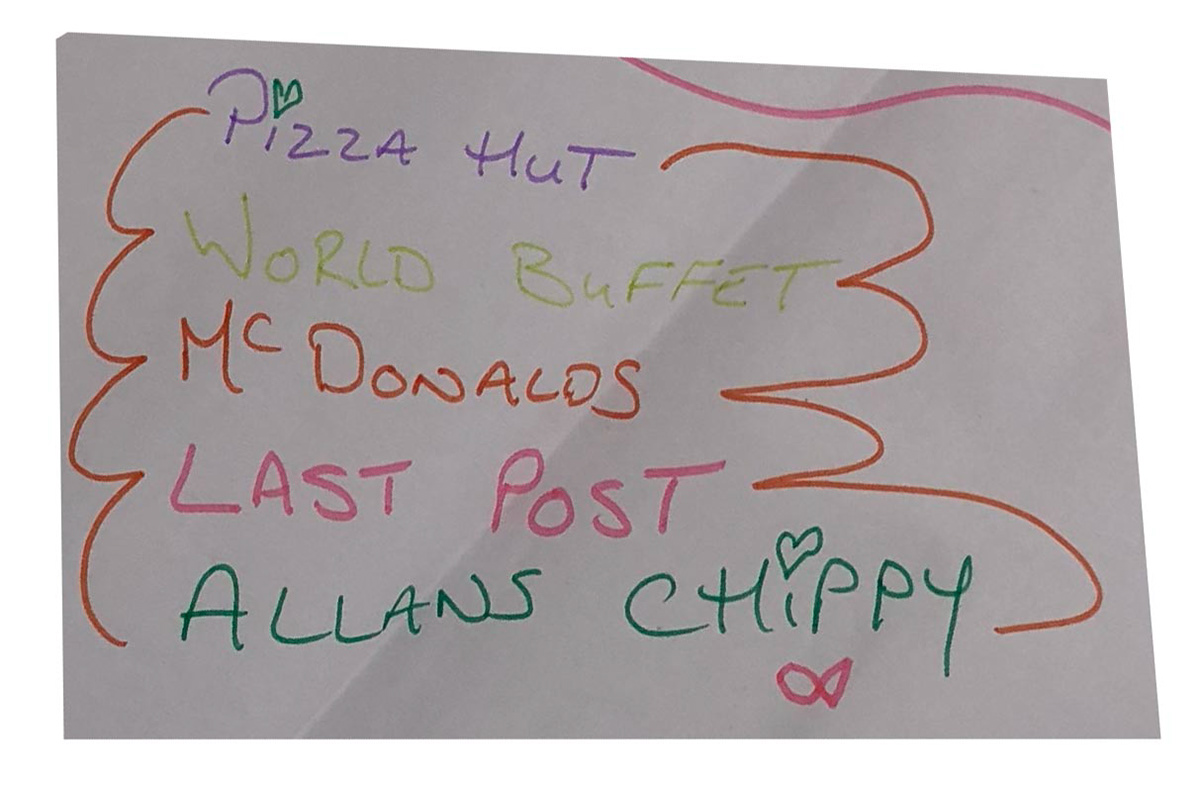 PiZZA HuT
WORLD BuFFET
McDONALDS
LAST POST
ALLANS CHiPPY